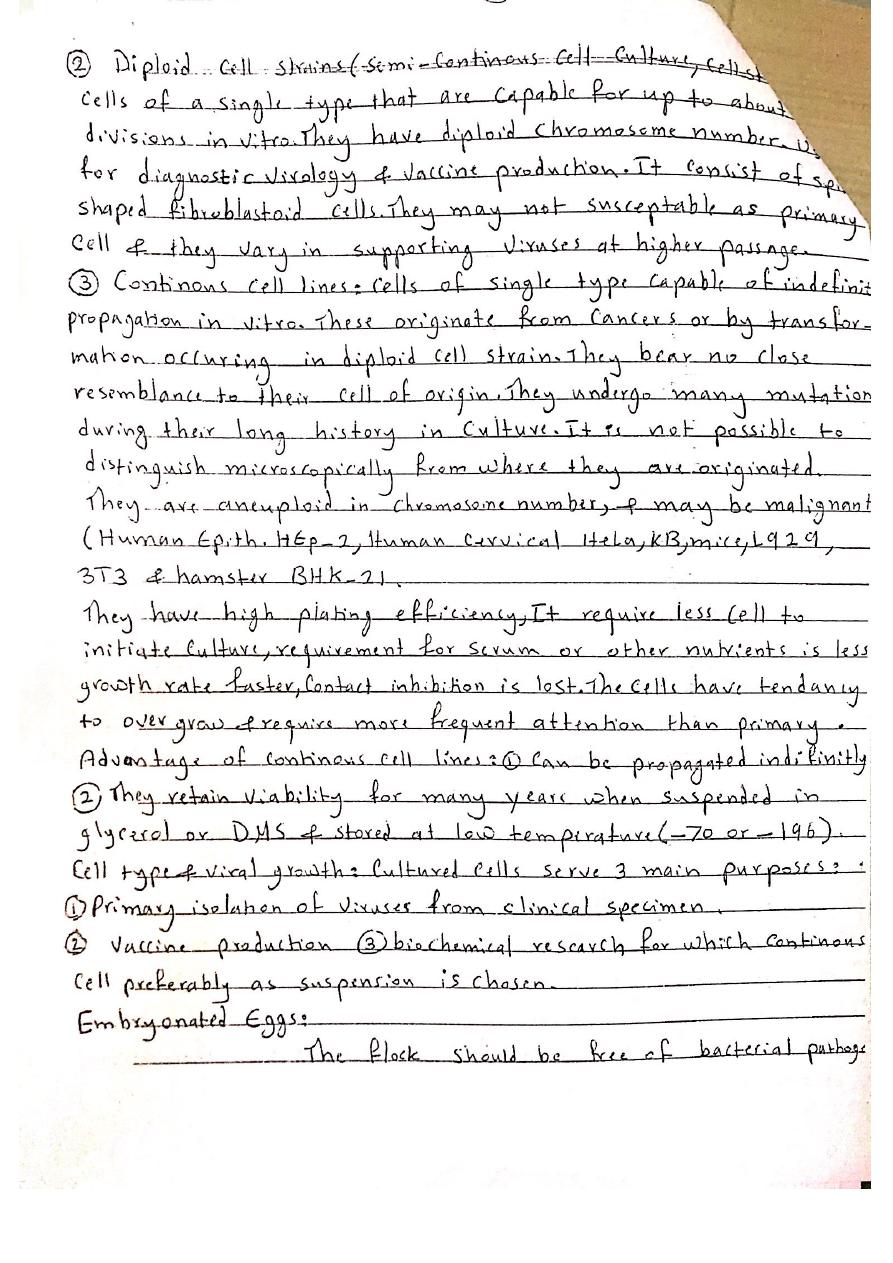 ② Diploid cell strains (Semi-Continous Cell Culture, Cell st
Cells of a single type that are capable for up to about
divisions in vitro. They have diploid chromosome number.
for diagnostic virology & vaccine production. It consist of
shaped fibroblastoid cells. They may not susceptable as primary
Cell & they vary in supporting viruses at higher passage.
③ Continous cell lines: cells of single type capable of indefinit
propagation in vitro. These originate from Cancers or by transfor-
mation occuring in diploid cell strain. They bear no close
resemblance to their cell of origin. They undergo many mutation
during their long history in Culture. It is not possible to
distinguish microscopically from where they are originated.
They are aneuploid in chromosome number, & may be malignant
(Human Epith. HEp-2, Human Cervical Hela, KB, mice, L929,
3T3 & hamster BHK-21.
They have high plating efficiency, It require less Cell to
initiate Culture, requirement for serum or other nutrients is less
growth rate faster, Contact inhibition is lost. The cells have tendancy
to over grow & require more frequent attention than primary.
Advantage of continous cell lines: ① Can be propagated indifinitly
② They retain viability for many years when suspended in
glycerol or DMS & stored at low temperature (-70 or -196).
Cell type & viral growth: Cultured Cells serve 3 main purposes:
① Primary isolation of viruses from clinical specimen.
② Vaccine production ③ biochemical research for which Continous
Cell preferably as suspension is chosen.
Embryonated Eggs:
The flock should be free of bacterial pathoge